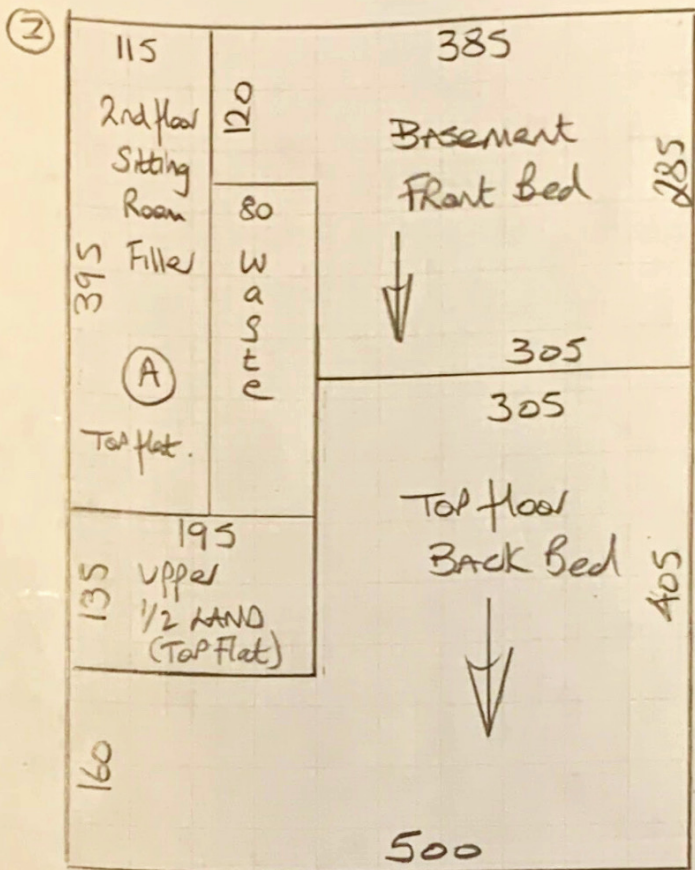 2
115
2nd floor
Sitting
Room
Filler
395
A
Top flat.
120
80
Waste
385
Basement
Front Bed
285
305
305
Top floor
BACK Bed
405
195
135
Upper
1/2 LAND
(Top Flat)
160
500